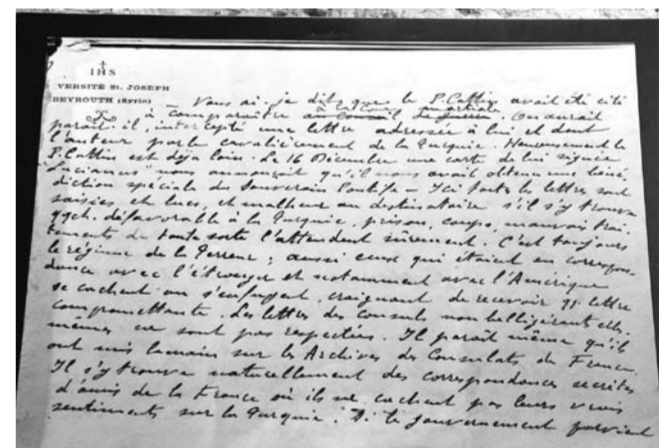 IHS
VERSITÉ St. JOSEPH
BEYROUTH (Syrie)
– Vous ai-je dit que le P. Cattin avait été cité
à comparaître au conseil de guerre à la Cour martiale. On aurait
paraît-il, intercepté une lettre adressée à lui et dont
l'auteur parle cavalièrement de la Turquie. Heureusement le
P. Cattin est déjà loin. Le 16 Décembre une carte de lui signée
"Lucianus" nous annonçait qu'il nous avait obtenu une béné-
diction spéciale du Souverain Pontife – Ici toutes les lettres sont
saisies et lues, et malheur au destinataire s'il s'y trouve
qqch. défavorable à la Turquie, prison, coups, mauvais trai-
tements de toute sorte l'attendent sûrement. C'est toujours
le régime de la Terreur; aussi ceux qui étaient en correspon-
dance avec l'étranger et notamment avec l'Amérique
se cachent ou s'enfuient, craignant de recevoir qq. lettre
compromettante. Les lettres des consuls non belligérants elles-
mêmes ne sont pas respectées. Il paraît même qu'ils
ont mis la main sur les Archives des Consulats de France.
Il s'y trouve naturellement des correspondances secrètes
d'amis de la France où ils ne cachent pas leurs vrais
sentiments sur la Turquie. Si le gouvernement parvient